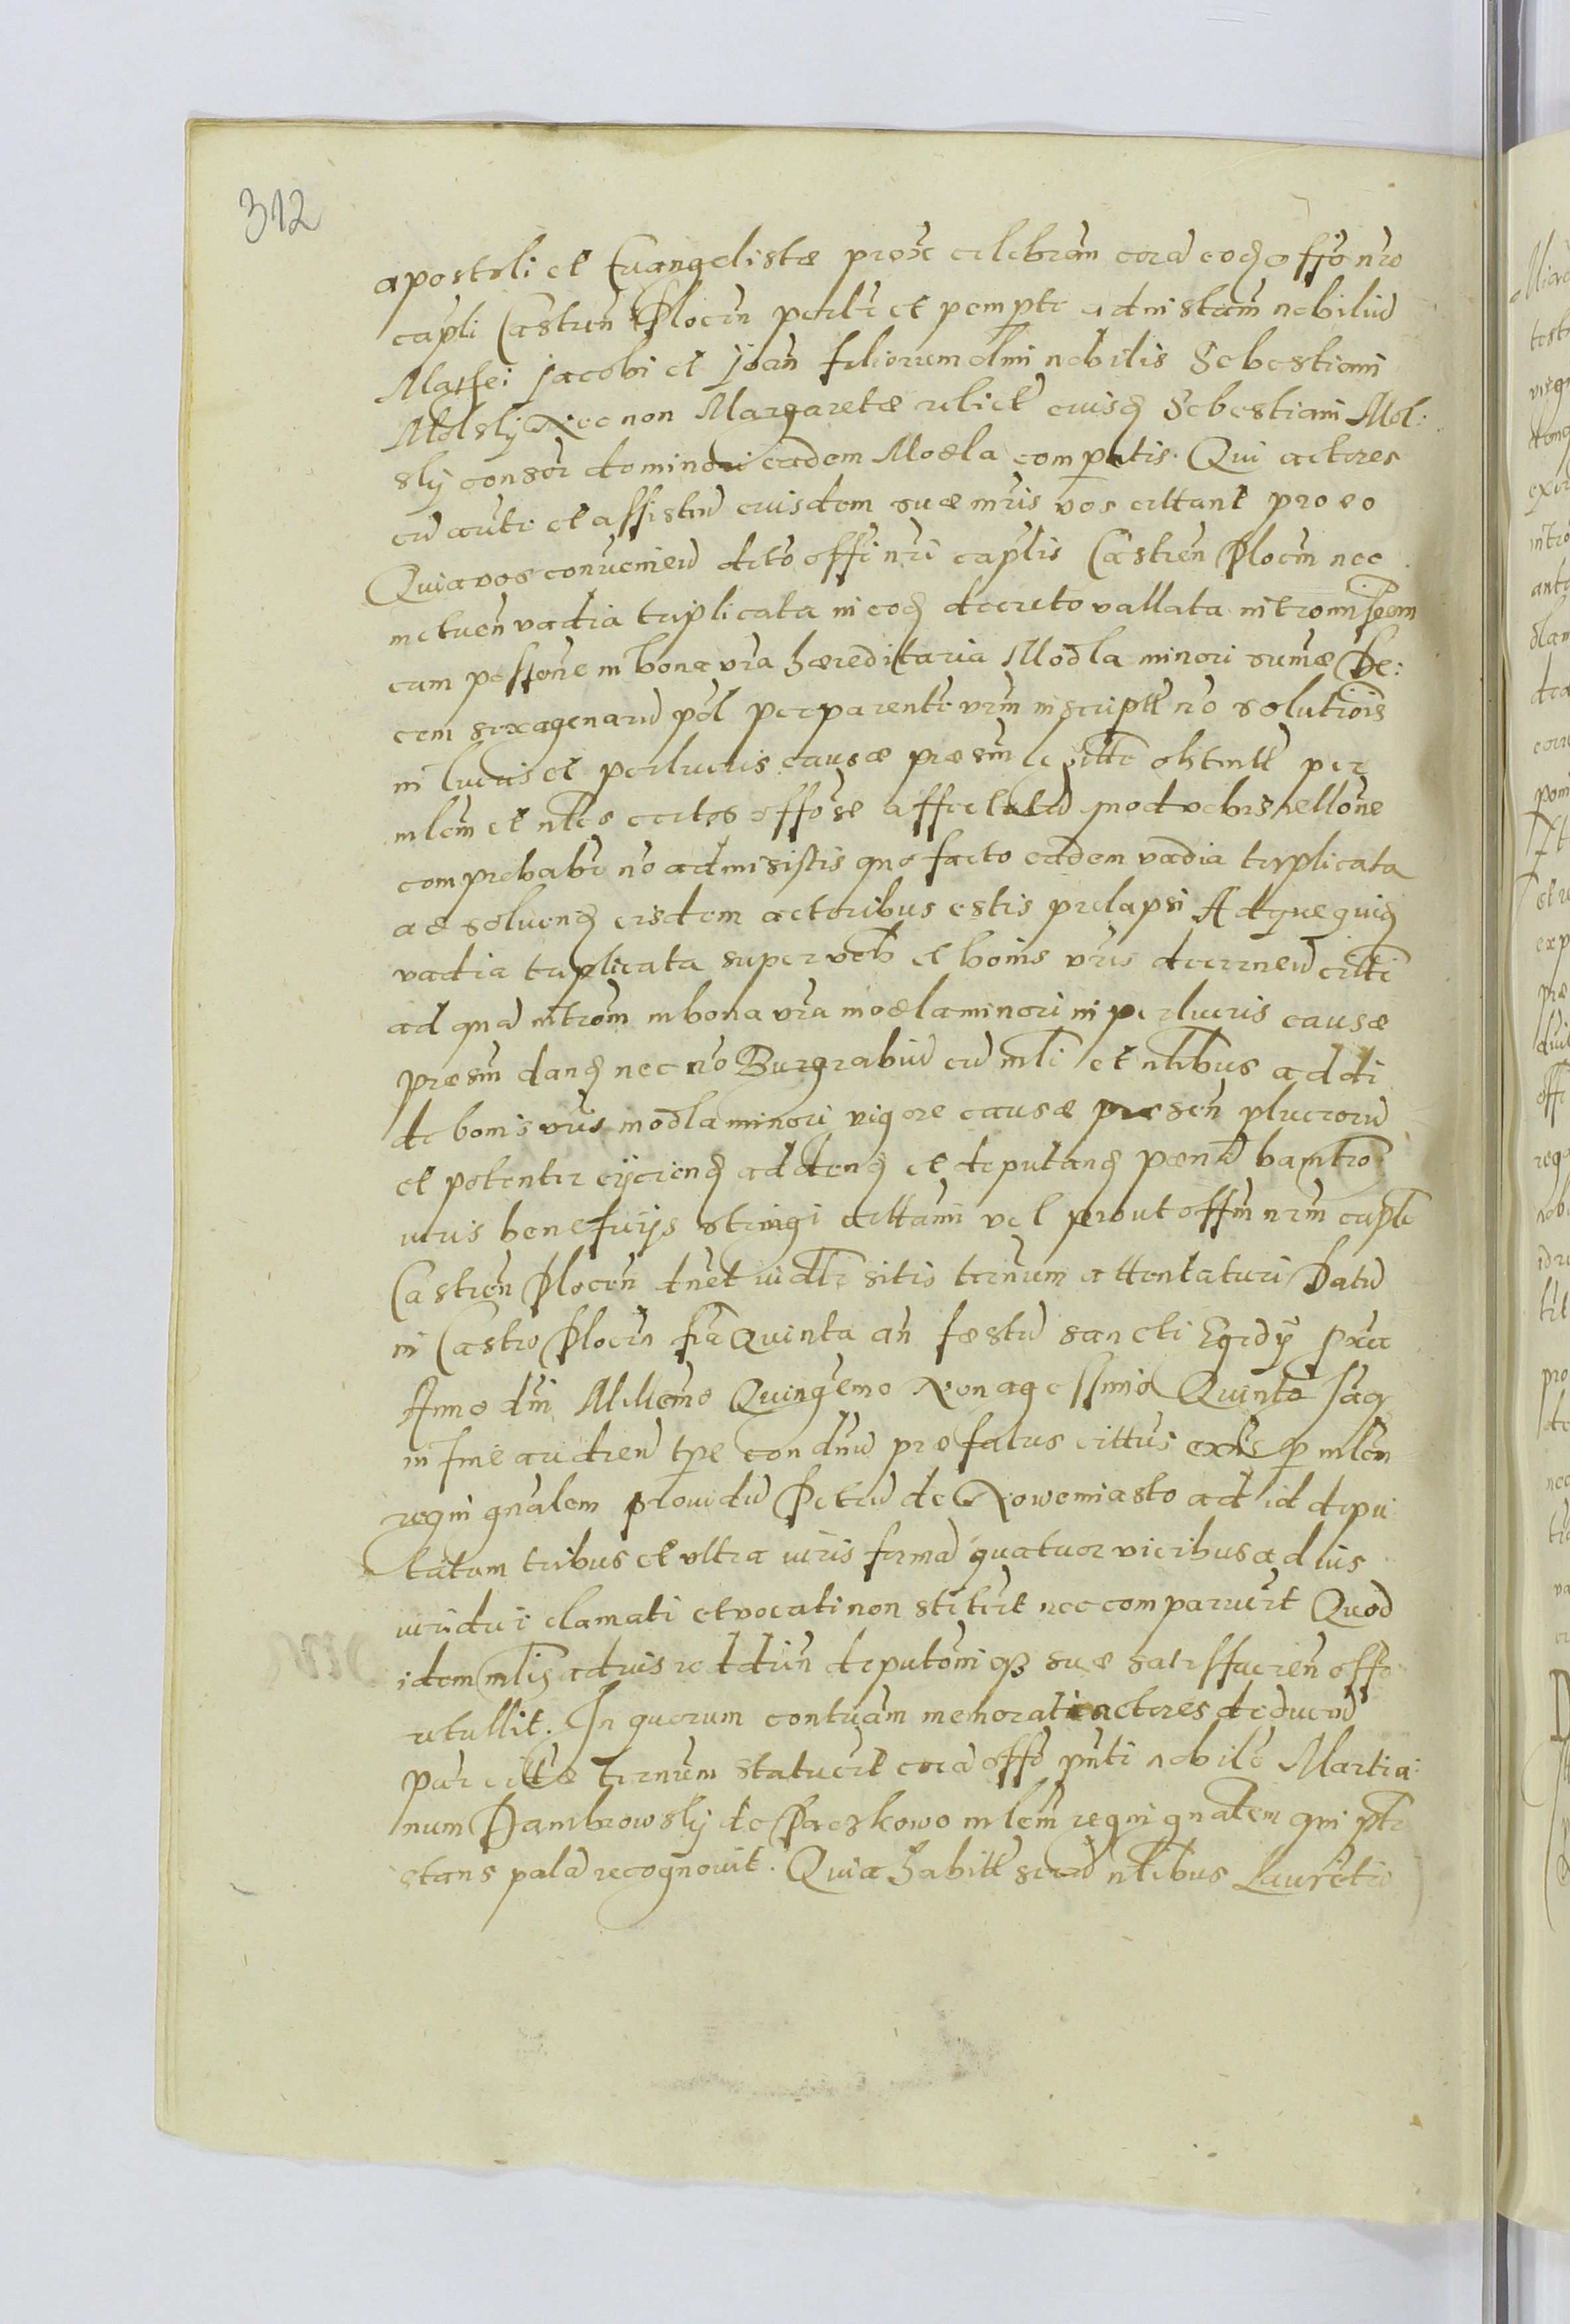 312
apostoli et Euangelistæ prox̃ celebrañ corã eoḍ offo nr̃o
capli Castreñ Plocen̄ perĩe et pempte ad instam̃ nobiliũ
Mathei Jacobi et Joañ filiorum olim nobilis Sebestiani
Mdlsky Nec non Margaretæ relictæ euisḍ Sebestiani Mol:
sky consor̃ de minori eadem Modla compatis. Qui actores
cũ aute et assisteñ euisdem suæ mr̃is vos cittant pro eo
Quia vos conueniend̃ dcto offi nr̃i caplis Castren̄ Plocen̄ nec
metuen̄ vadia triplicata in eoḍ decreto vallata intromissem
eam possone in bona vr̃a hæreditaria Modla minori sum̃æ De:
cem sexagenarũ pol̃ per parente vr̃m inscript̃ nõ solutiois
in lucris et perlucris causæ præsen̄ citte obtent̃ per
mlem et nles certos offose affectatã quod vobis rellone
comprobabe nõ admisistis quo facto eadem vadia triplicata
ad soluenḍ eisdem actoribus estis prolapsi Adque quiḍ
vadia triplicata super vob̃ et bonis vr̃is decernenḍ citti
ad quã intrõm in bona vr̃a modla minori in perlucris causæ
præsen̄ danḍ nec nõ Burgrabiũ cũ mli et nlibus addi
de bonis vr̃is modla minori vigore causæ præsen̄ plucrorũ
et potenter eijcienḍ addenḍ et deputanḍ pænã banitõ
iuris beneficijs stringi cittam̃i vel prout offm̃ nr̃m capli
Castren̄ Plocen̄ dn̄et iudi sitis ternum attentaturi Datũ
in Castro Plocen̄ fra Quinta an̄ festũ sancti Egidÿ px̃a
Anno dn̄i Millemo Quingemo Nonagessimo Quinto Jaq
in fine audien̄ tpe condnũ præfatus cittus exñs p mlem
regni gnalem prouidũ Petrũ de Nowemiasto ad id depu
tatum tribus et vltra iuris formã quatuor vicibus ad ius
iuridici clamati et vocati non stetert nec comparuert Quod
idem mlis ad ius reddeñ deputom̃i qz suæ satisffacien̄ offo
retullit. In quorum contuam̃ memorati actores deducenḍ
par cittæ ternum statuert corã offo pn̄ti nobile Martia:
num Dambrowsky de Paczkowo mlem regni gnalem qui pte
stans palã recognouit. Quia habitt secũ nlibus Laurẽtio